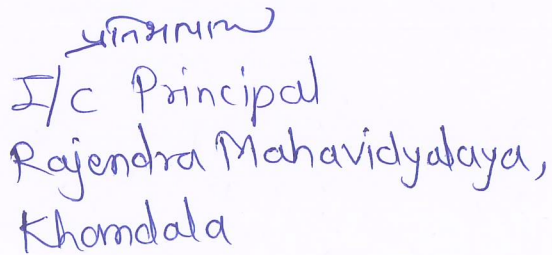 I/C Principal
Rajendra Mahavidyalaya,
Khamdala